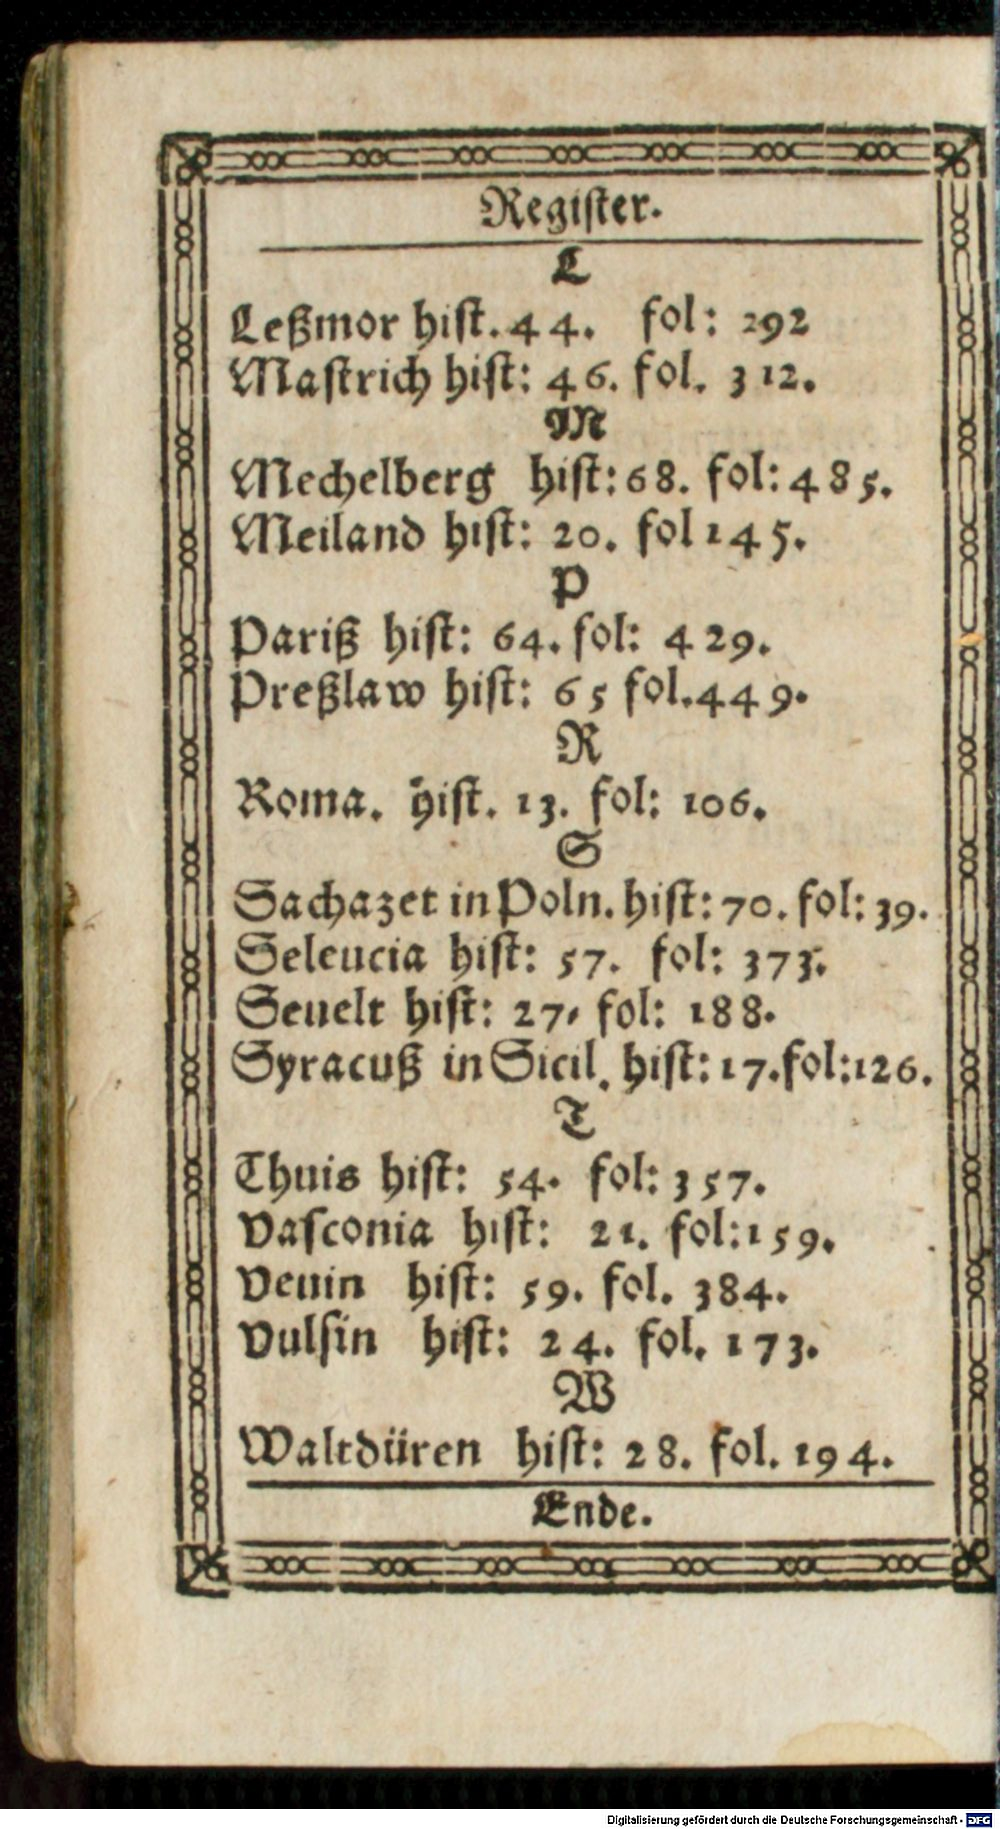 Regiſter.
L
Leßmor hiſt. 44. fol: 292
Maſtrich hiſt: 46. fol. 312.
M
Mechelberg hiſt: 68. fol: 485.
Meiland hiſt: 20. fol 145.
P
Pariß hiſt: 64. fol: 429.
Preßlaw hiſt: 65 fol. 449.
R
Roma. hiſt. 13. fol: 106.
S
Sachazet in Poln. hiſt: 70. fol: 39.
Seleucia hiſt: 57. fol: 373.
Seuelt hiſt: 27, fol: 188.
Syracuß in Sicil. hiſt: 17. fol: 126.
T
Thuis hiſt: 54. fol: 357.
Vaſconia hiſt: 21. fol: 159.
Veuin hiſt: 59. fol. 384.
Vulſin hiſt: 24. fol. 173.
W
Waltdüren hiſt: 28. fol. 194.
Ende.
Digitalisierung gefördert durch die Deutsche Forschungsgemeinschaft - DFG